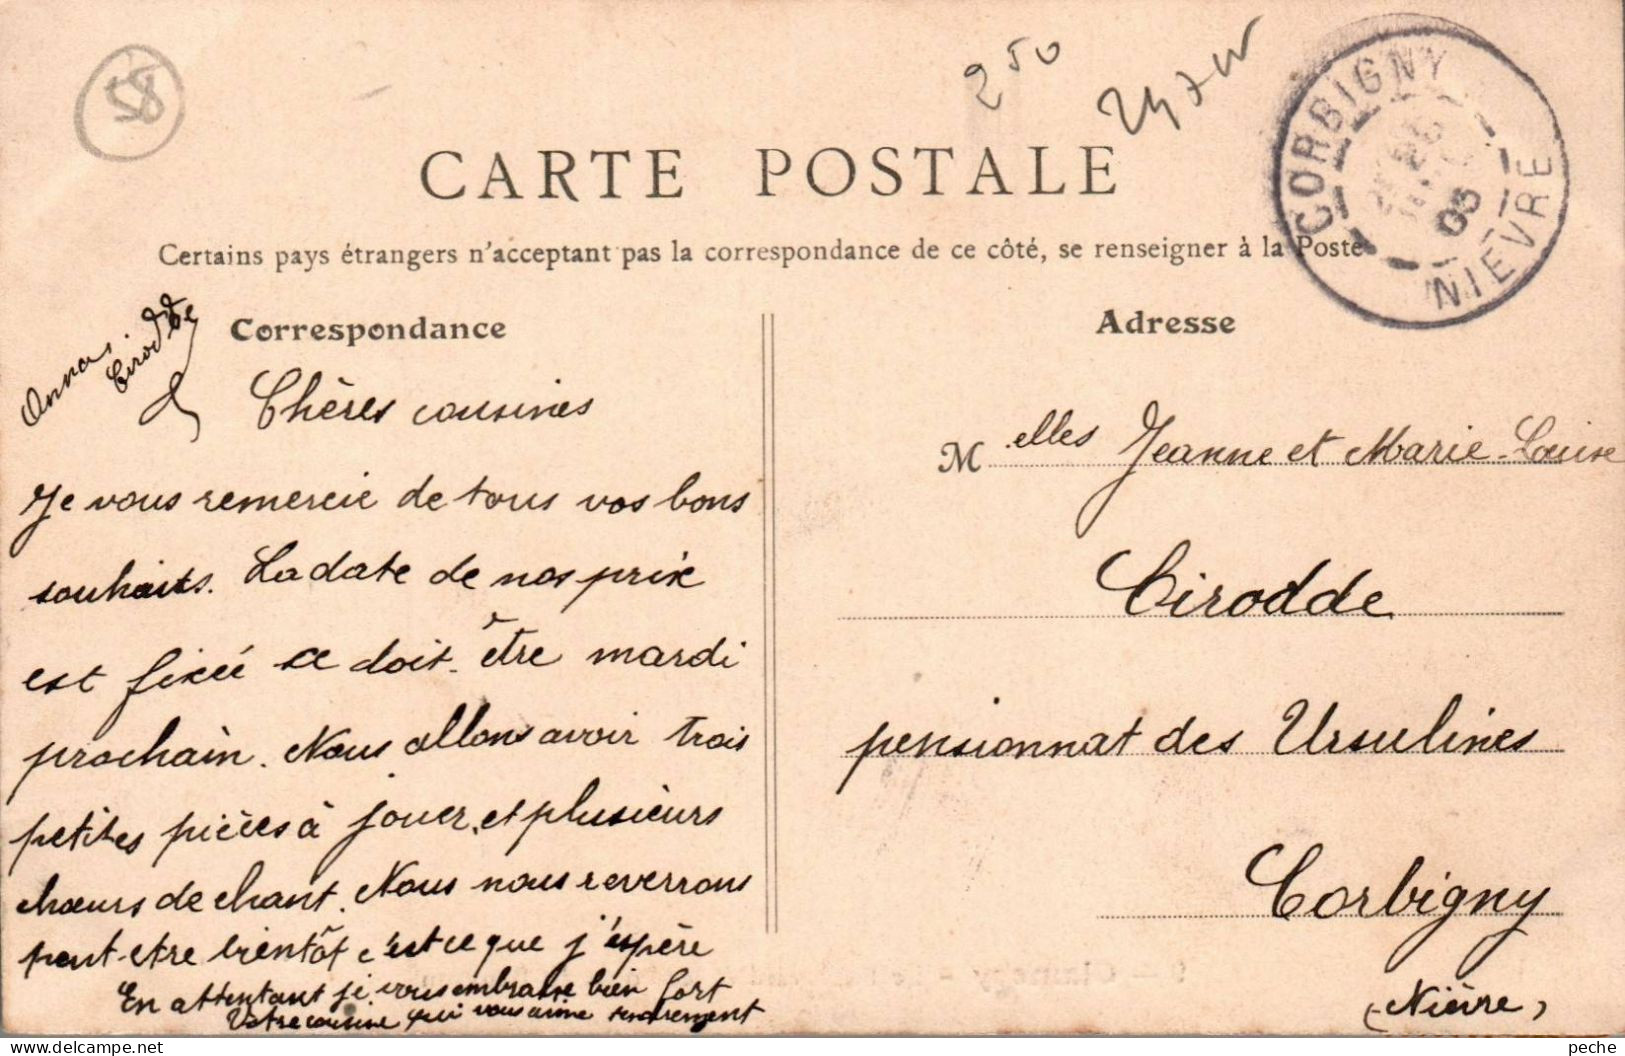 58
2 50
CORBIGNY
05
NIEVRE
CARTE POSTALE
Certains pays étrangers n'acceptant pas la correspondance de ce côté, se renseigner à la Poste
Correspondance
Cirodde
Chères cousines
Je vous remercie de tous vos bons
souhaits. La date de nos prix
est fixée ce doit être mardi
prochain. Nous allons avoir trois
petites pièces à jouer, et plusieurs
chœurs de chant. Nous nous reverrons
peut-etre bientôt c'est ce que j'espère
En attendant je vous embrasse bien fort
Votre cousine qui vous aime tendrement
Adresse
M elles Jeanne et Marie-Louise
Cirodde
pensionnat des Ursulines
Corbigny
(Nièvre)
peche